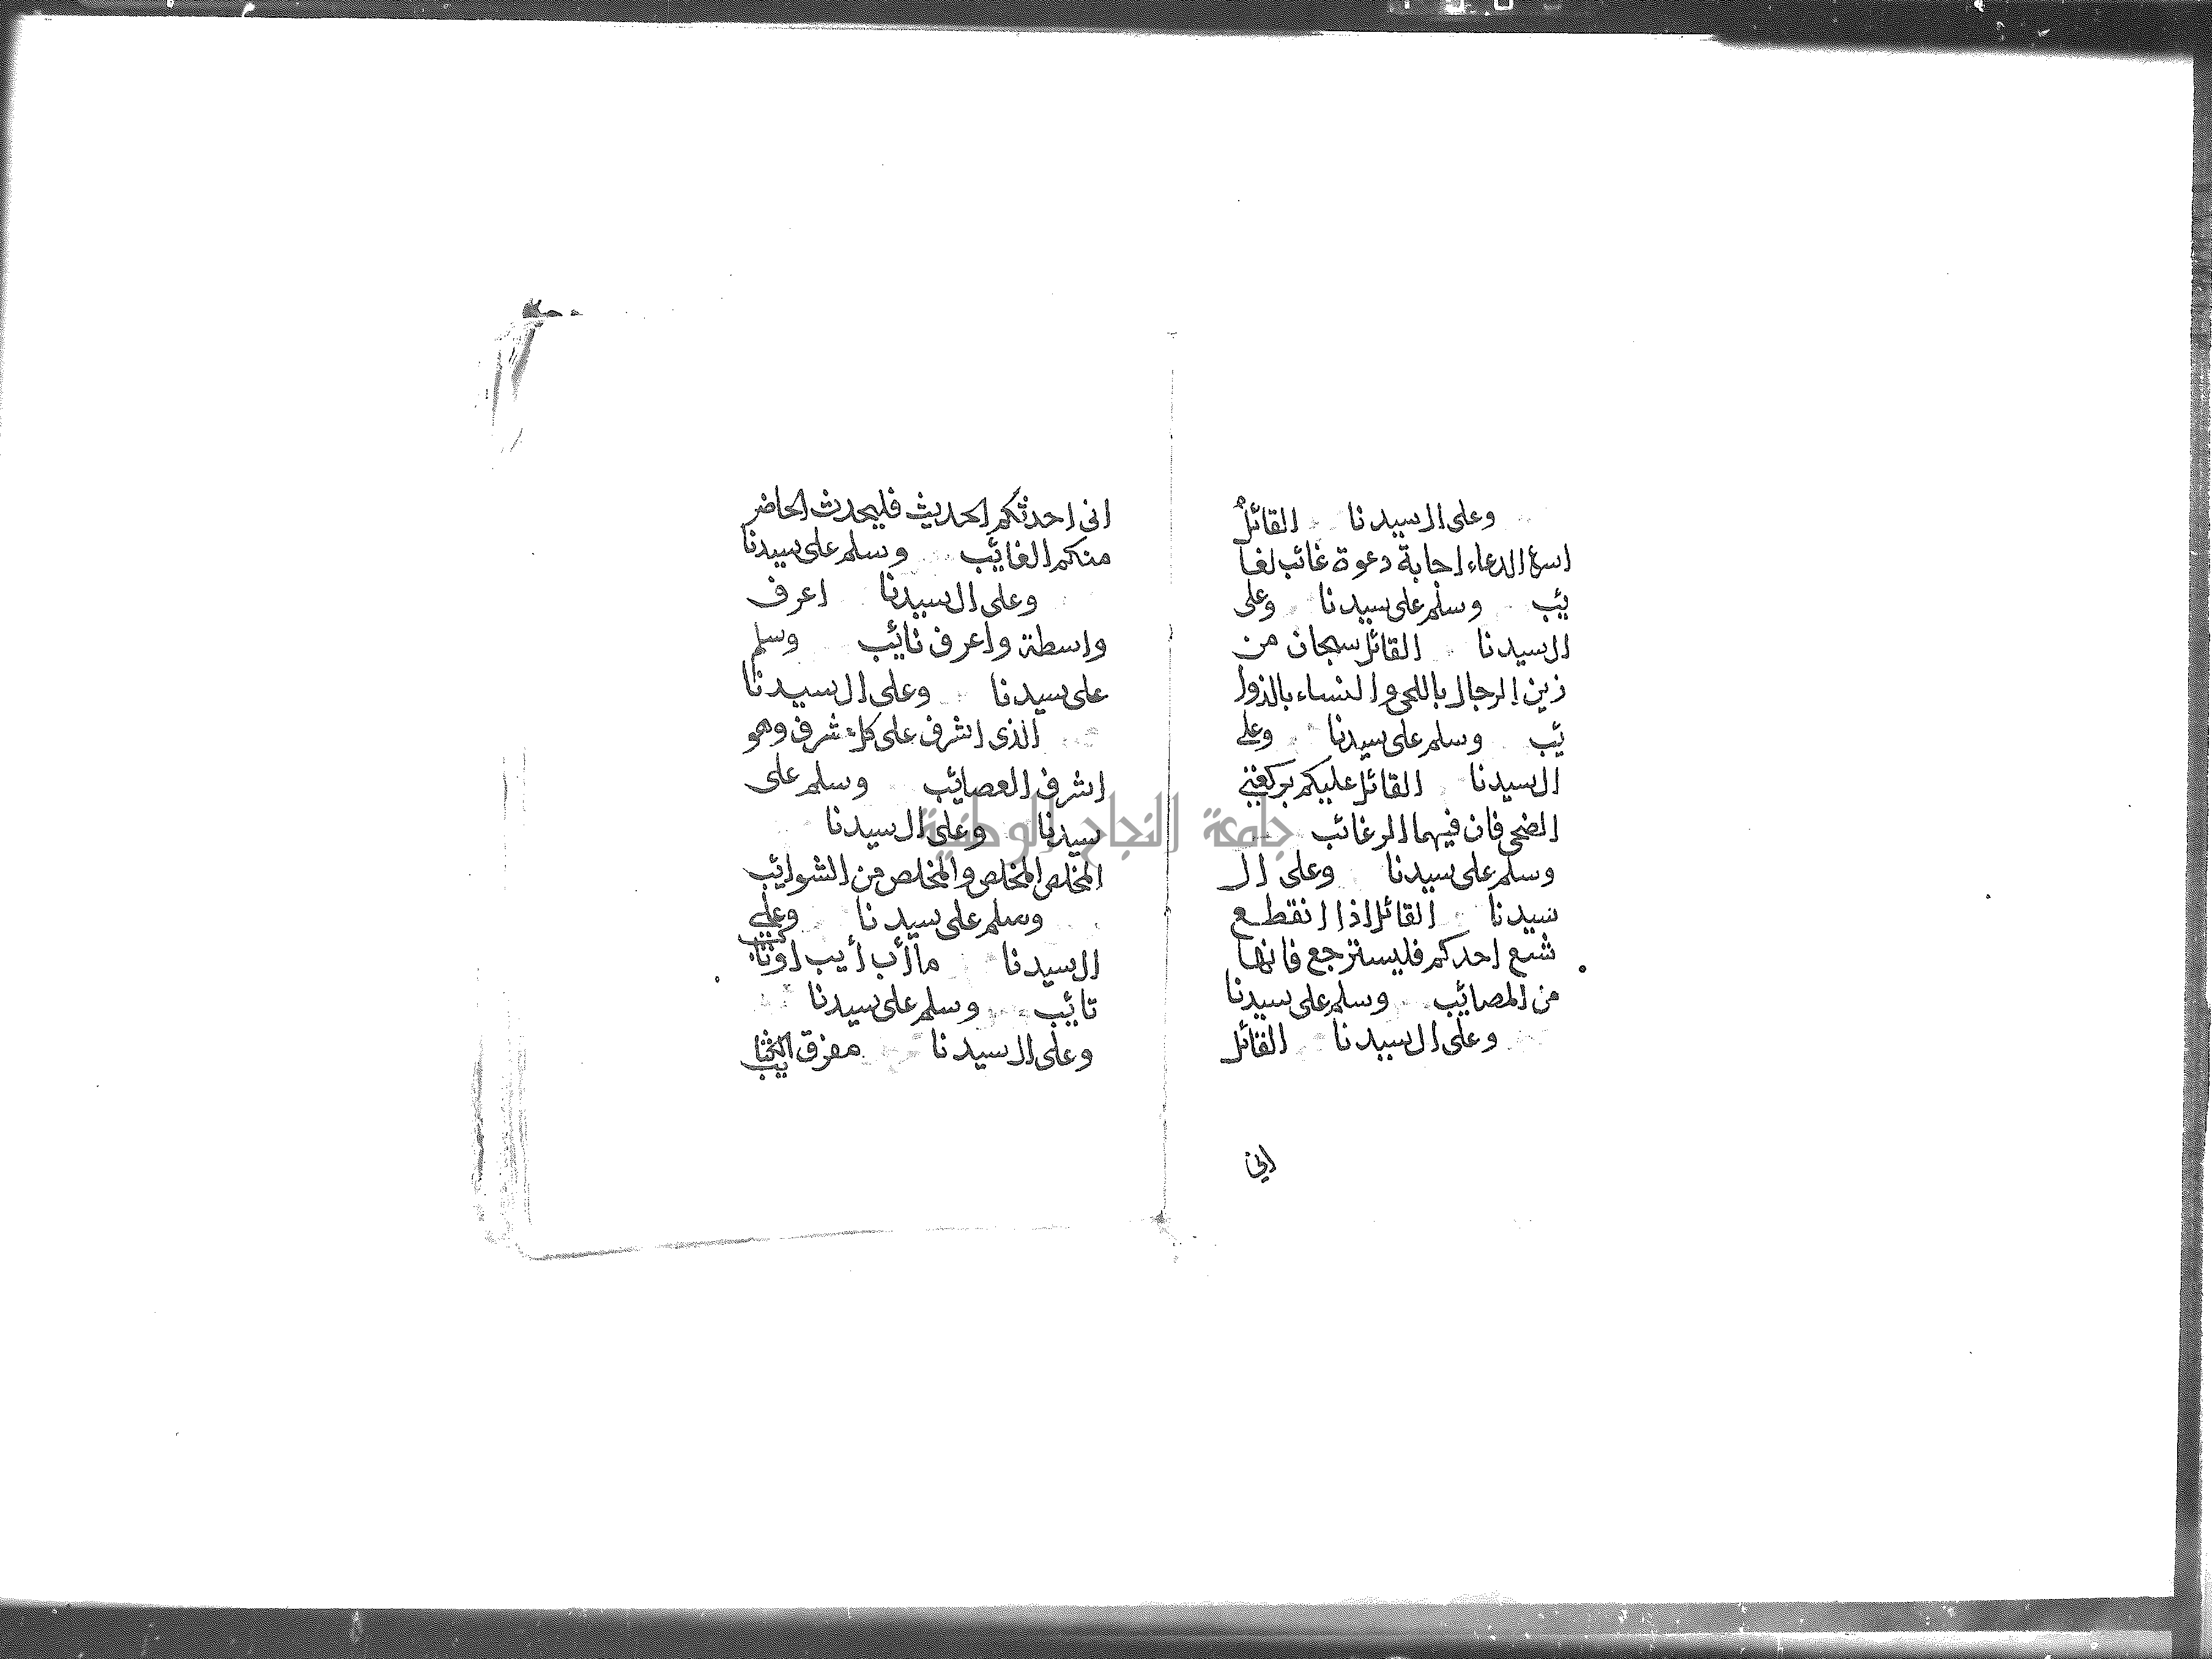 وعلى ال سيدنا القائل
اسرع الدعاء اجابة دعوة غائب لغا
يئب وسلم على سيدنا وعلى
ال سيدنا القائل سبحان من
زين الرجال باللحى والنساء بالذوا
يئب وسلم على سيدنا وعلى
ال سيدنا القائل عليكم بركعتي
الضحى فان فيهما الرغائب
وسلم على سيدنا وعلى ال
سيدنا القائل اذا انقطع
شسع احدكم فليسترجع فانها
من المصائيب وسلم على سيدنا
وعلى ال سيدنا القائل
اني
اني احدثكم الحديث فليحدث الحاضر
منكم الغائيب وسلم على سيدنا
وعلى ال سيدنا اعرف
واسطة واعرف نائيب وسلم
على سيدنا وعلى ال سيدنا
الذى اشرف على كل شرف وهو
اشرف العصائيب وسلم على
سيدنا وعلى ال سيدنا
المخلص المخلص والمخلص من الشوائيب
وسلم على سيدنا وعلى
ال سيدنا ما أب أيب او تاب
تائيب وسلم على سيدنا
وعلى ال سيدنا مفرق الكتا
يئب
جامعة النجاح الوطنية